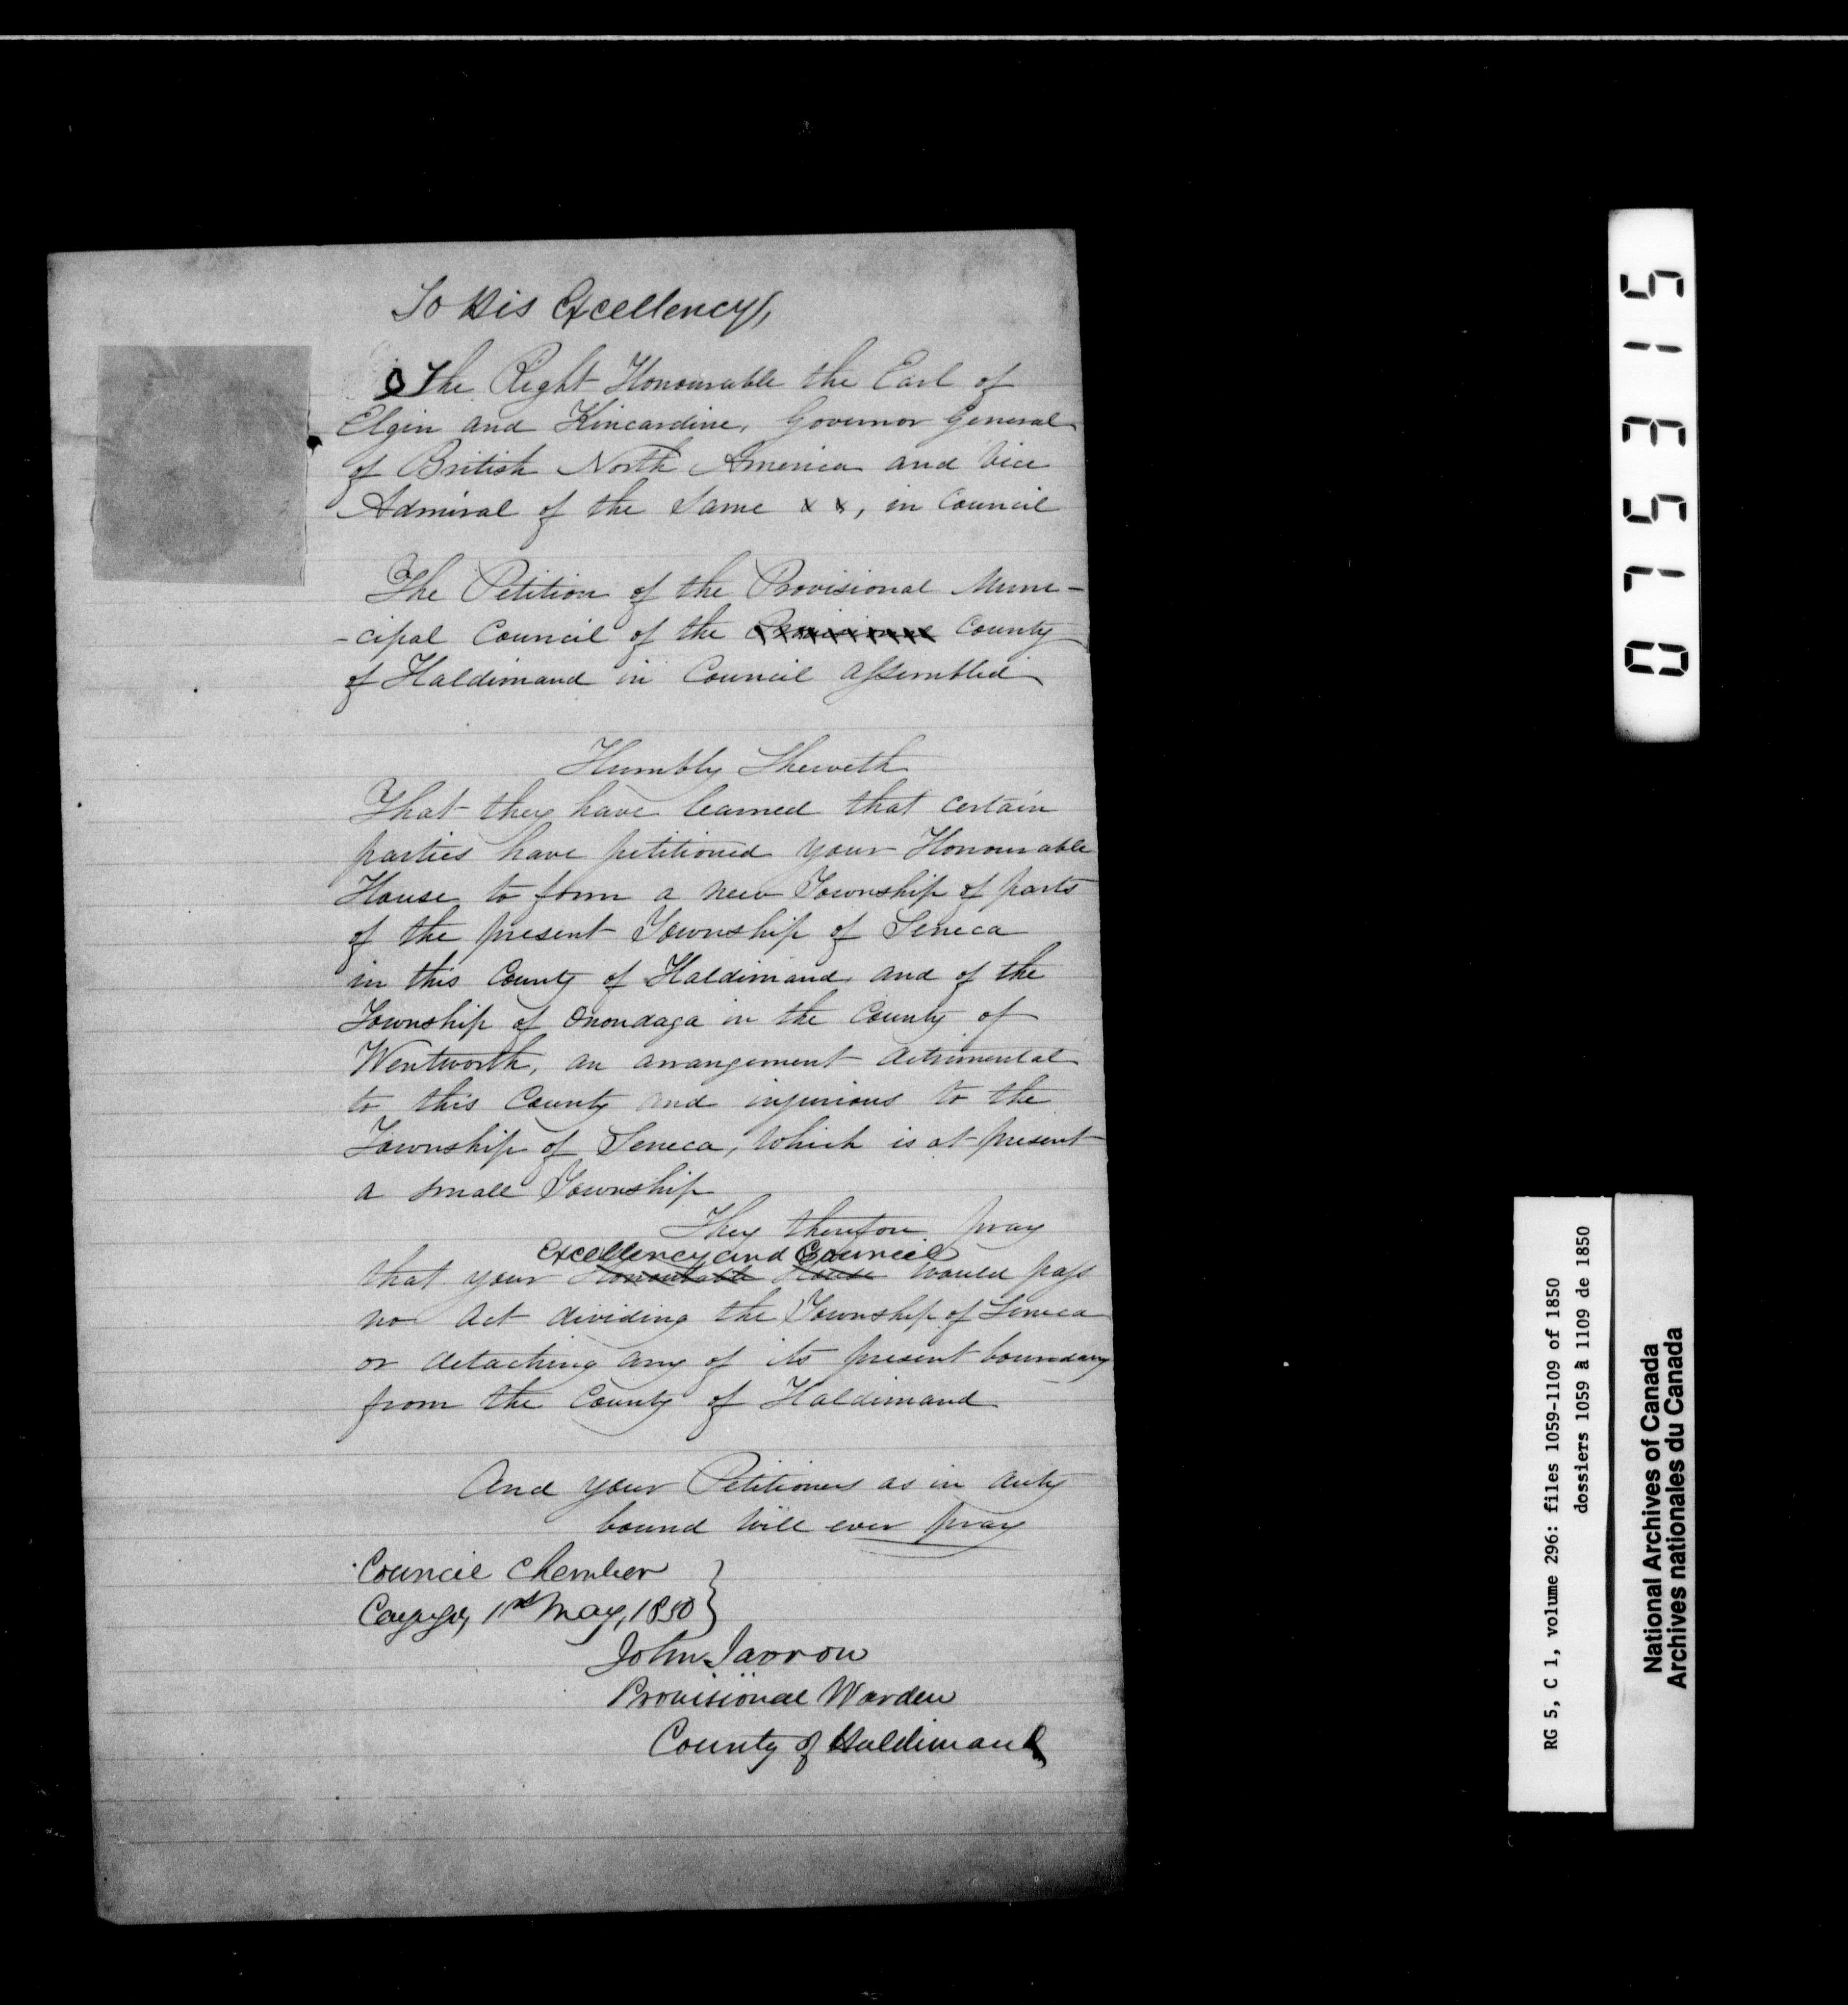 To His Excellency,
The Right Honourable the Earl of
Elgin and Kincardine, Governor General
of British North America and Vice
Admiral of the Same x x, in Council
The Petition of the Provisional Muni-
-cipal Council of the County
of Haldimand in Council assembled
Humbly Sheweth
That they have learned that certain
parties have petitioned your Honourable
House to form a new Township of parts
of the present Township of Seneca
in this County of Haldimand and of the
Township of Onondaga in the County of
Wentworth, an arrangement detrimental
to this County and injurious to the
Township of Seneca, which is at present
a small Township
They therefore pray
Excellency and Council
that your Honourable House would pass
no Act dividing the Township of Seneca
or detaching any of its present boundary
from the County of Haldimand
And your Petitioners as in duty
bound will ever pray
Council Chamber
Cayuga, 1st May, 1850
John Jarron
Provisional Warden
County of Haldimand
075315
RG 5, C 1, volume 296: files 1059-1109 of 1850
dossiers 1059 à 1109 de 1850
National Archives of Canada
Archives nationales du Canada